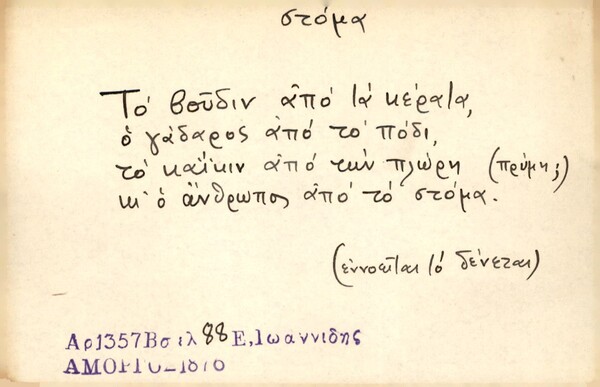 στόμα
Τὸ βοῦδιν ἀπὸ τὰ κέρατα,
ὁ γάδαρος ἀπὸ τὸ πόδι,
τὸ καΐκιν ἀπὸ τὴν πλώρη (πρύμη;)
κι ὁ ἄνθρωπος ἀπὸ τὸ στόμα.
(ἐννοεῖται τὸ δένεται)
Αρ1357Βσελ 88 Ε,Ιωαννιδης
ΑΜΟΡΓΟ-1876